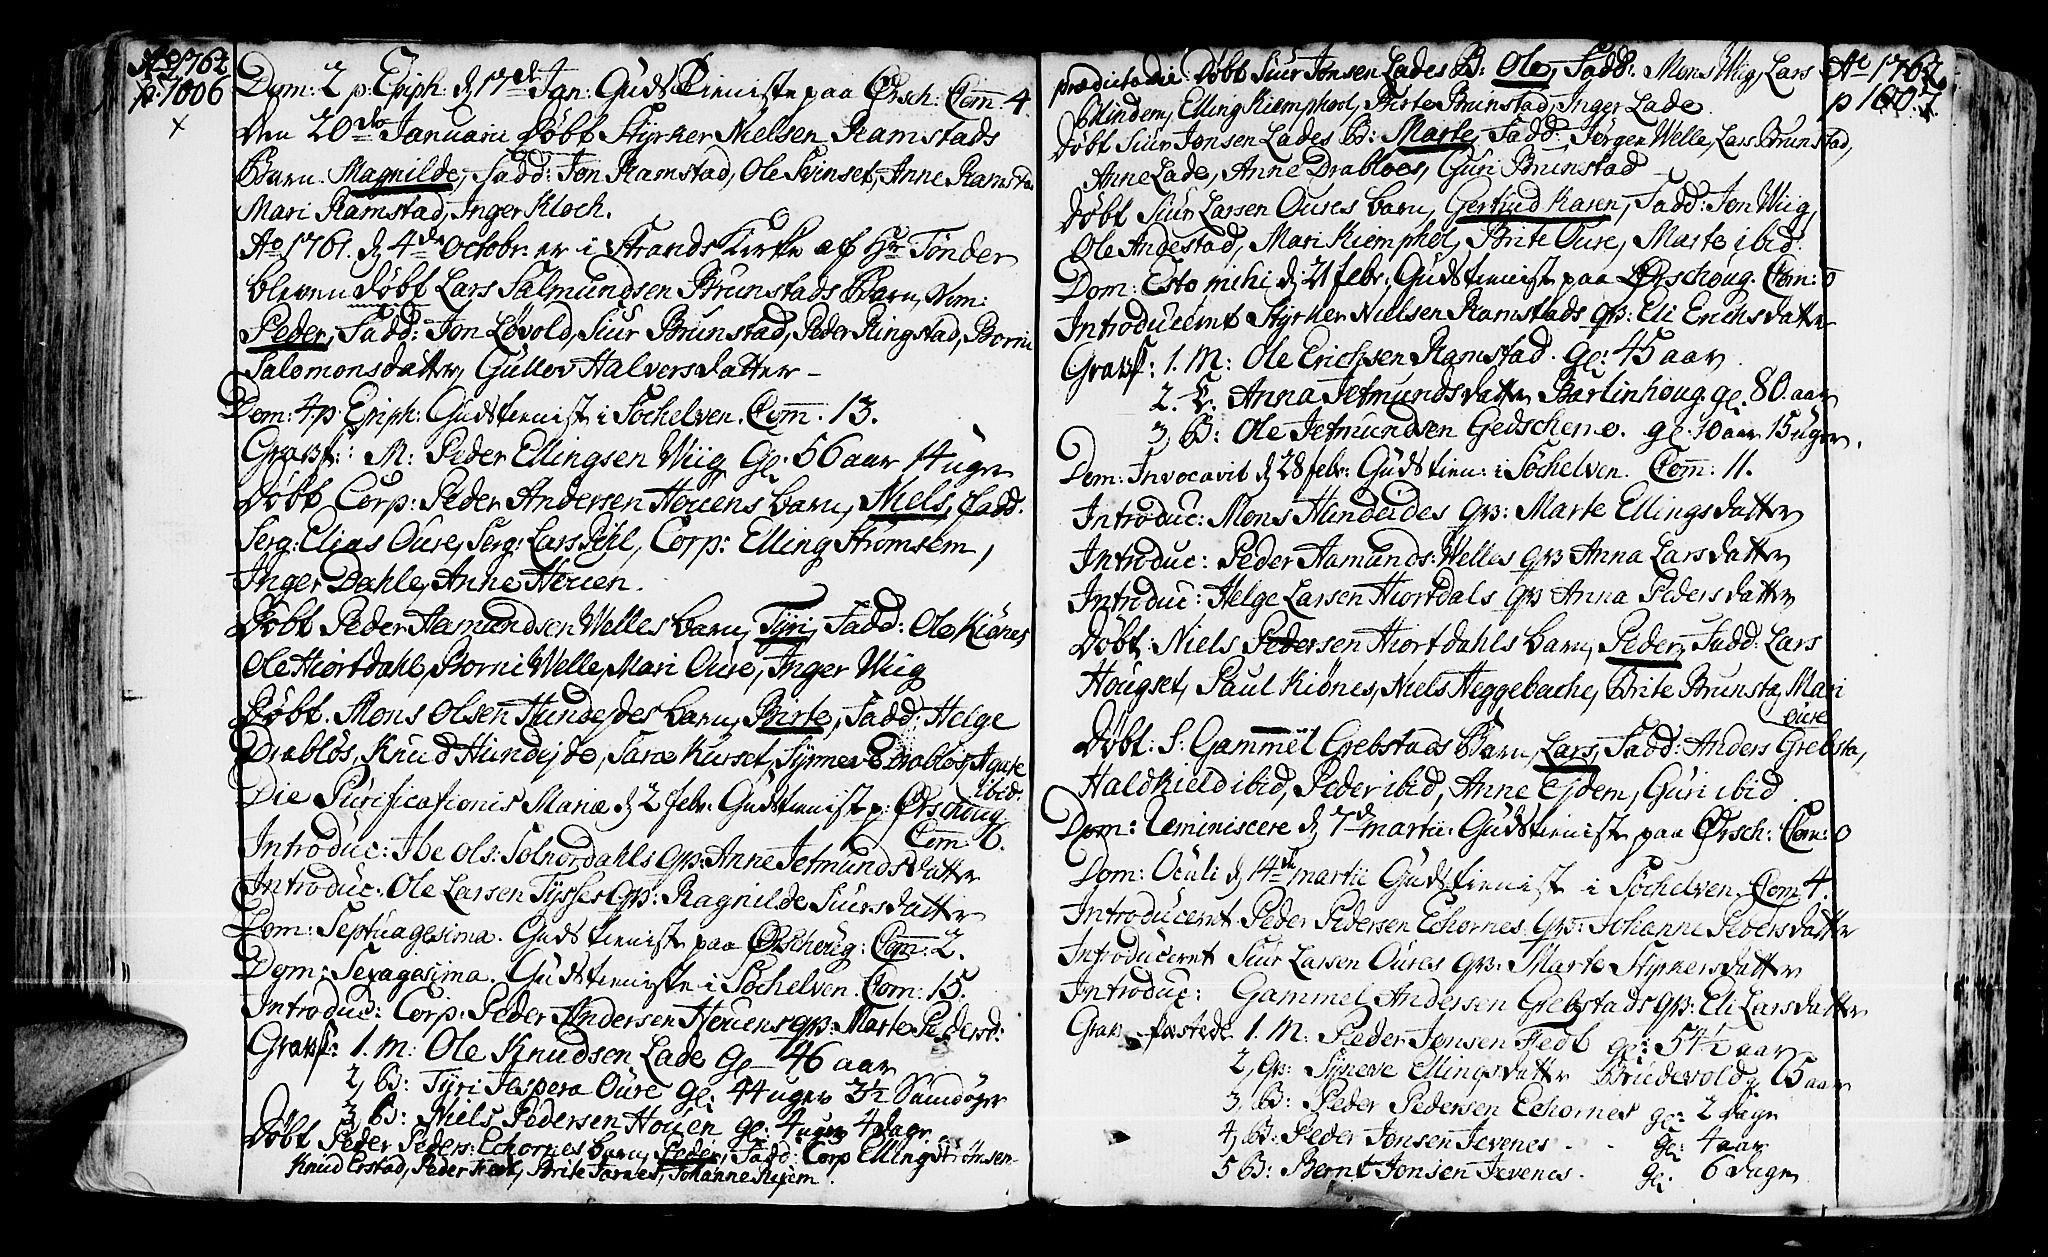 Ao 1762
p. 1006
x
Dom: 2 p. Epiph: d 17de Jan: Gudstieniste paa Ørsch: Com̄ 4.
Den 20de Januarii Døbt Styrker Nielsen Ramstads
Barn Magnilde, Fadd: Jon Ramstad, Ole Svinset, Anne Ramsta
Mari Ramstad, Inger Kloch.
Ao 1761. d 4de Octobr: er i Strands Kirke af Hr Tønder
bleven døbt Lars Salmundsen Brunstads Barn, Nom:
Peder, Fadd: Jon Løvold, Siur Brunstad, Peder Ringstad, Borni
Salomonsdatter, Gullov Halversdatter –
Dom: 4 p. Epiph: Gudstienist i Søchelven. Com̄. 13.
Gravf: M: Peder Ellingsen Wiig Gl: 56 aar 14 ugr
Døbt Corp: Peder Andersen Houens barn, Niels, Fadd:
Serg: Elias Oure, Serg: Lars Pihl, Corp: Elling Strømsem,
Inger Dahle, Anne Houen.
Døbt Peder Aamundsen Welles barn, Tyri, Fadd: Ole Kiønes,
Ole Hiortdahl, Borni Welle, Mari Oure, Inger Wiig
Døbt. Mons Olsen Hundejdes barn, Birte, Fadd: Helge
Drabløs, Knud Hundejde, Sara Kurset, Synneve Drabløs, Agate
ibid:
Die Purificationis Mariæ d 2 febr: Gudstienist p: Ørschoug
Com: 6.
Introduc: Ibe Ols: Solnordahls qv: Anne Jetmundsdatter
Introduc: Ole Larsen Tysses qv: Ragnilde Siursdatter
Dom: Septuagesima. Gudstienist paa Ørschoug: Com̄: 2.
Dom: Sexagesima. Gudstieniste i Søchelven. Com: 15.
Introduc: Corp: Peder Andersen Houens qv: Marte Pedersd:
Gravf: 1. M: Ole Knudsen Lade Gl 46 aar
2, B: Tyri Jespera Oure gl: 44 uger 3½ Samdøger
3, B: Niels Pedersen Houen gl: 4 ugr 4 dagr.
Døbt Peder Peders: Echornes barn, Peder, Fadd: Corp Elling Strømsem
Knud Erstad, Peder Fedt, Brite Tornes, Johanne Rejem.
Ao 1762
p 1007.
prædicto die Døbt Siur Jonsen Lades B: Ole, Fadd: Mons Wiig, Lars
Blindem, Elling Kiemphool, Birte Brunstad, Inger Lade
Døbt Siur Jonsen Lades B: Marte, Fadd: Jørgen Welle, Lars Brunstad,
Anne Lade, Anne Drabloes, Guri Brunstad
Døbt Siur Larsen Oures barn, Gertrud Karen, Fadd: Jon Wiig,
Ole Andestad, Mari Kiemphol, Brite Oure, Marte ibid:
Dom: Esto mihi d 21 febr: Gudstienist paa Ørschoug. Com: 0
Introducernt Styrker Nielsen Ramstads qv: Eli Erichsdatter
Gravf: 1. M: Ole Erichsen Ramstad. gl: 45 aar
2. Anna Jetmundsdatter Bartinhoug gl. 80 aar
3, B: Ole Jetmundsen Gedschene. gl. 10 aar 15 uger.
Dom: Invocavit d 28 febr: Gudstien: i Søchelven. Com̄: 11.
Introduc: Mons Hundeides qv: Marte Ellingsdatter
Introduc: Peder Aamunds: Welles qv Anna Larsdatter
Introduc: Helge Larsen Hiortdals qv Anna Pedersdatter
Døbt: Niels Pedersen Hiortdahls barn, Peder, Fadd: Lars
Hougset, Paul Kiønes, Niels Heggebache, Brite Brunsta, Mari
Oure
Døbt: S: Gammel Grebstads Barn, Lars, Fadd: Anders Grebsta,
Haldkield ibid, Peder ibid, Anne Ejdem, Guri ibid
Dom: Reminiscere d 7d martii: Gudstieniste paa Ørsch: Com: 0
Dom: Oculi d 14de martii Gudstienist i Søchelven. Com 4.
Introducernt Peder Pedersen Echornes qv: Johanne Pedersdatter
Introducernt Siur Larsen Oures qv: Marte Styrkersdatter
Introduc: Gammel Andersen Grebstads qv: Eli Larsdatter
Grav-fæstede 1. M: Peder Jonsen Fedt gl: 54½ aar
2, qv: Synneve Ellingsdatter Brudevold gl 65 aar
3, B: Peder Pedersen Echornes gl: 2 dage
4, B: Peder Jonsen Jevenes - - gl: 4 aar
5 B: Bernt Jonsen Jevenes. gl: 6 dage